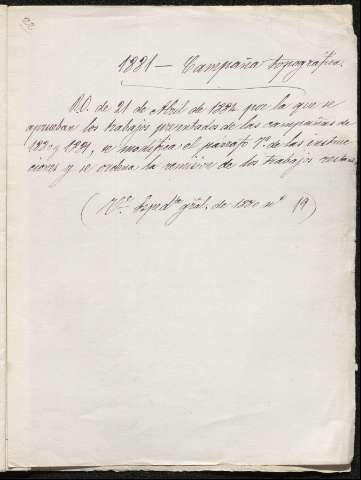 1881 — Campaña topográfica.
R.O. de 21 de Abril de 1882 por la que se
aprueban los trabajos presentados de las campañas de
1880 y 1881, se modifica el parrafo 7º de las instruc-
ciones y se ordena la remision de los trabajos
(Vº. Expdte gral. de 1880 nº 19)